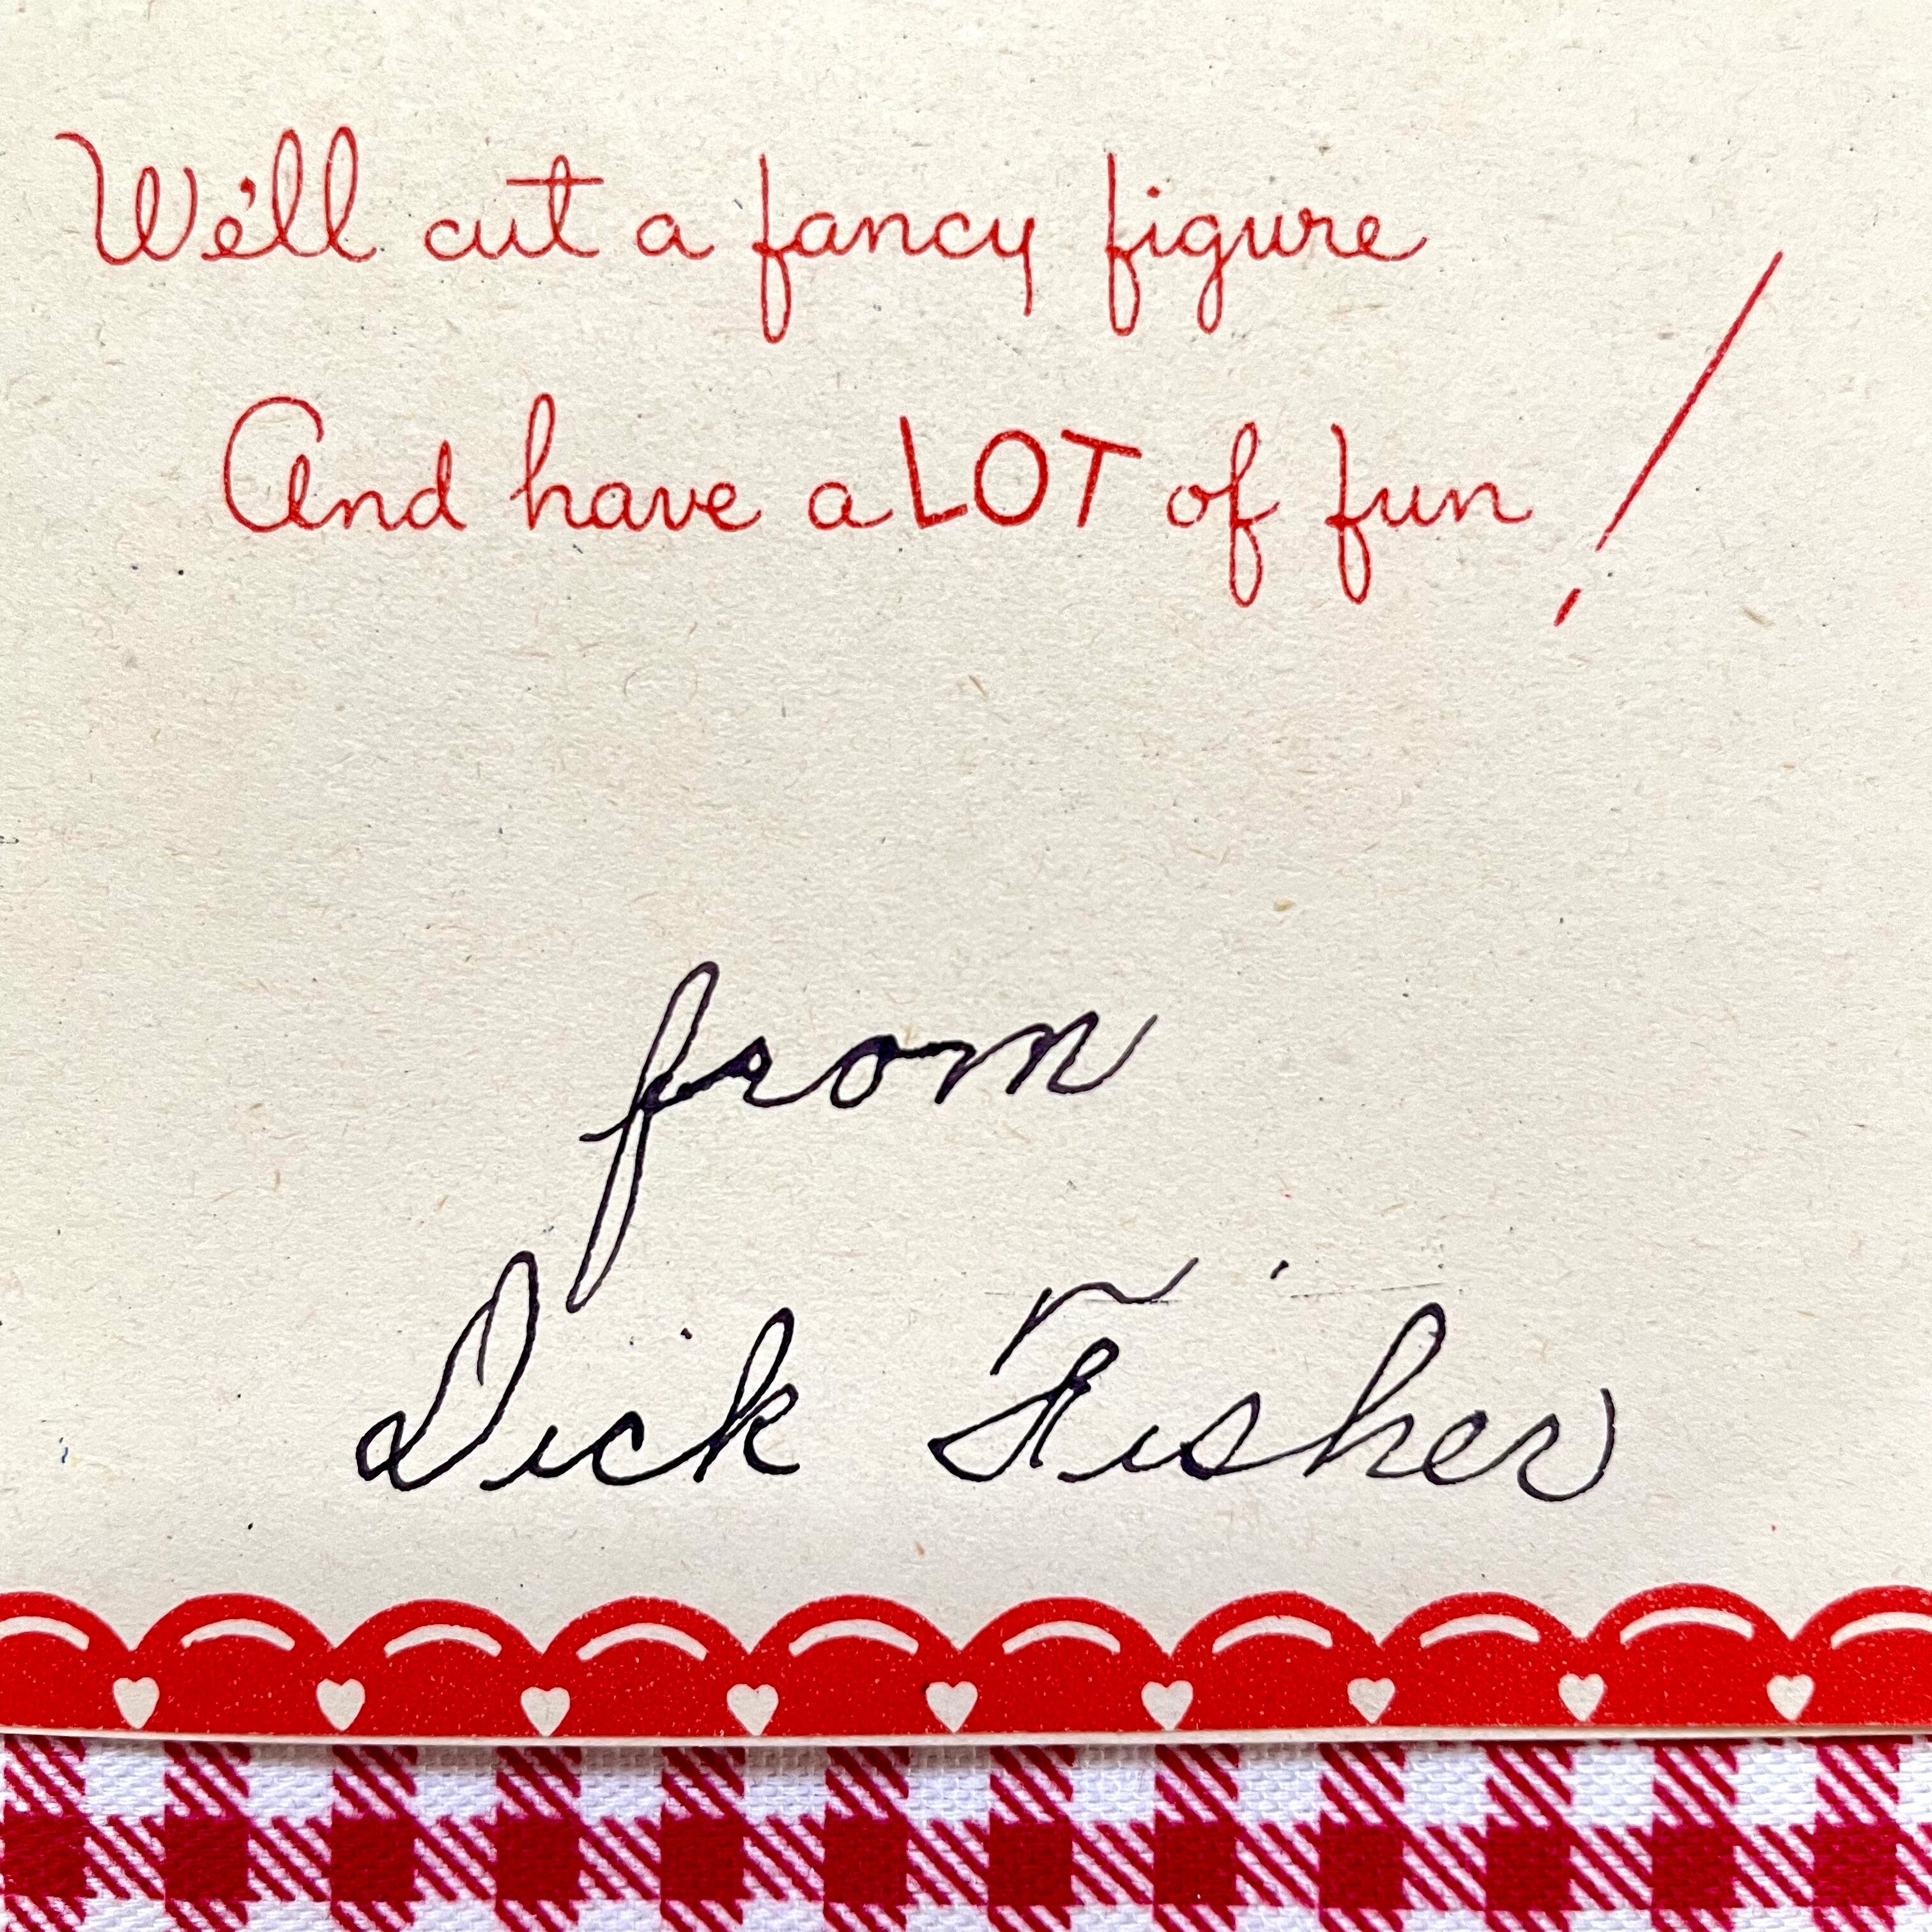 We'll cut a fancy figure
And have a LOT of fun!
from
Dick Fisher